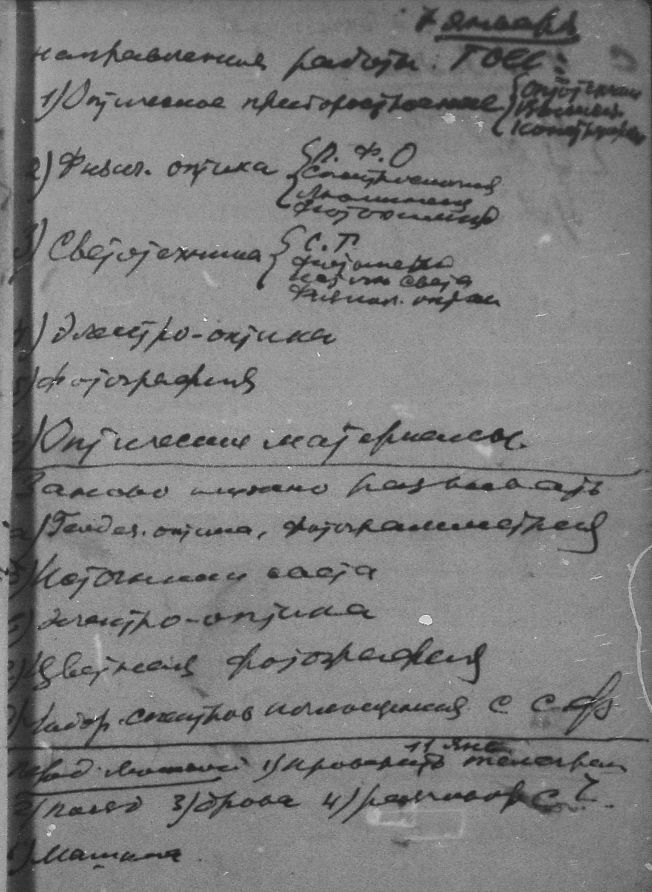 7 января
направления работы ГОИ:
1) Оптическое приборостроение { Оптотехник
Вычисл.
Конструкт.
2) Физич. оптика { П. Ф. О
Спектроскопия
Люминесц
Фотохимия
3) Светотехника { С. Т.
Фотометр
Источн. света
Физиол. оптик
4) Электро-оптика
5) Фотография
6) Оптические материалы.
Заново нужно развивать
а) Геодез. оптика, фотограмметрия
б) Источники света
в) Электро-оптика
г) Цветная фотография
д) спектров поглощения с
11 янв
1) проверить телеграм
2) поезд 3) дрова 4) разговор с Ч.
5) Машина.